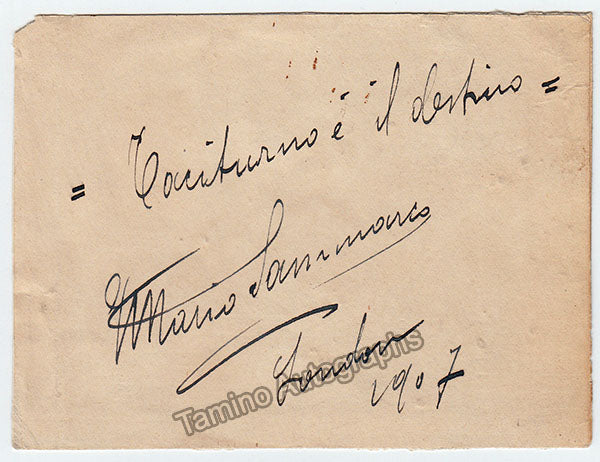 = Taciturno è il destino =
Mario Sammarco
London
1907
Tamino Autographs